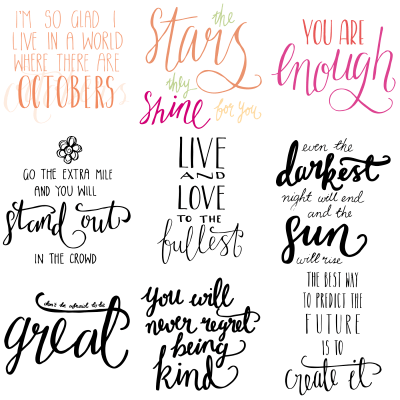 I'M SO GLAD I
LIVE IN A WORLD
WHERE THERE ARE
OCTOBERS
the
Stars
they
Shine for you
YOU ARE
enough
GO THE EXTRA MILE
AND YOU WILL
stand out
IN THE CROWD
LIVE
AND
LOVE
TO THE
fullest
even the
darkest
night will end
and the
sun
will rise
don't be afraid to be
great
you will
never regret
being
kind
THE BEST WAY
TO PREDICT THE
FUTURE
IS TO
create it